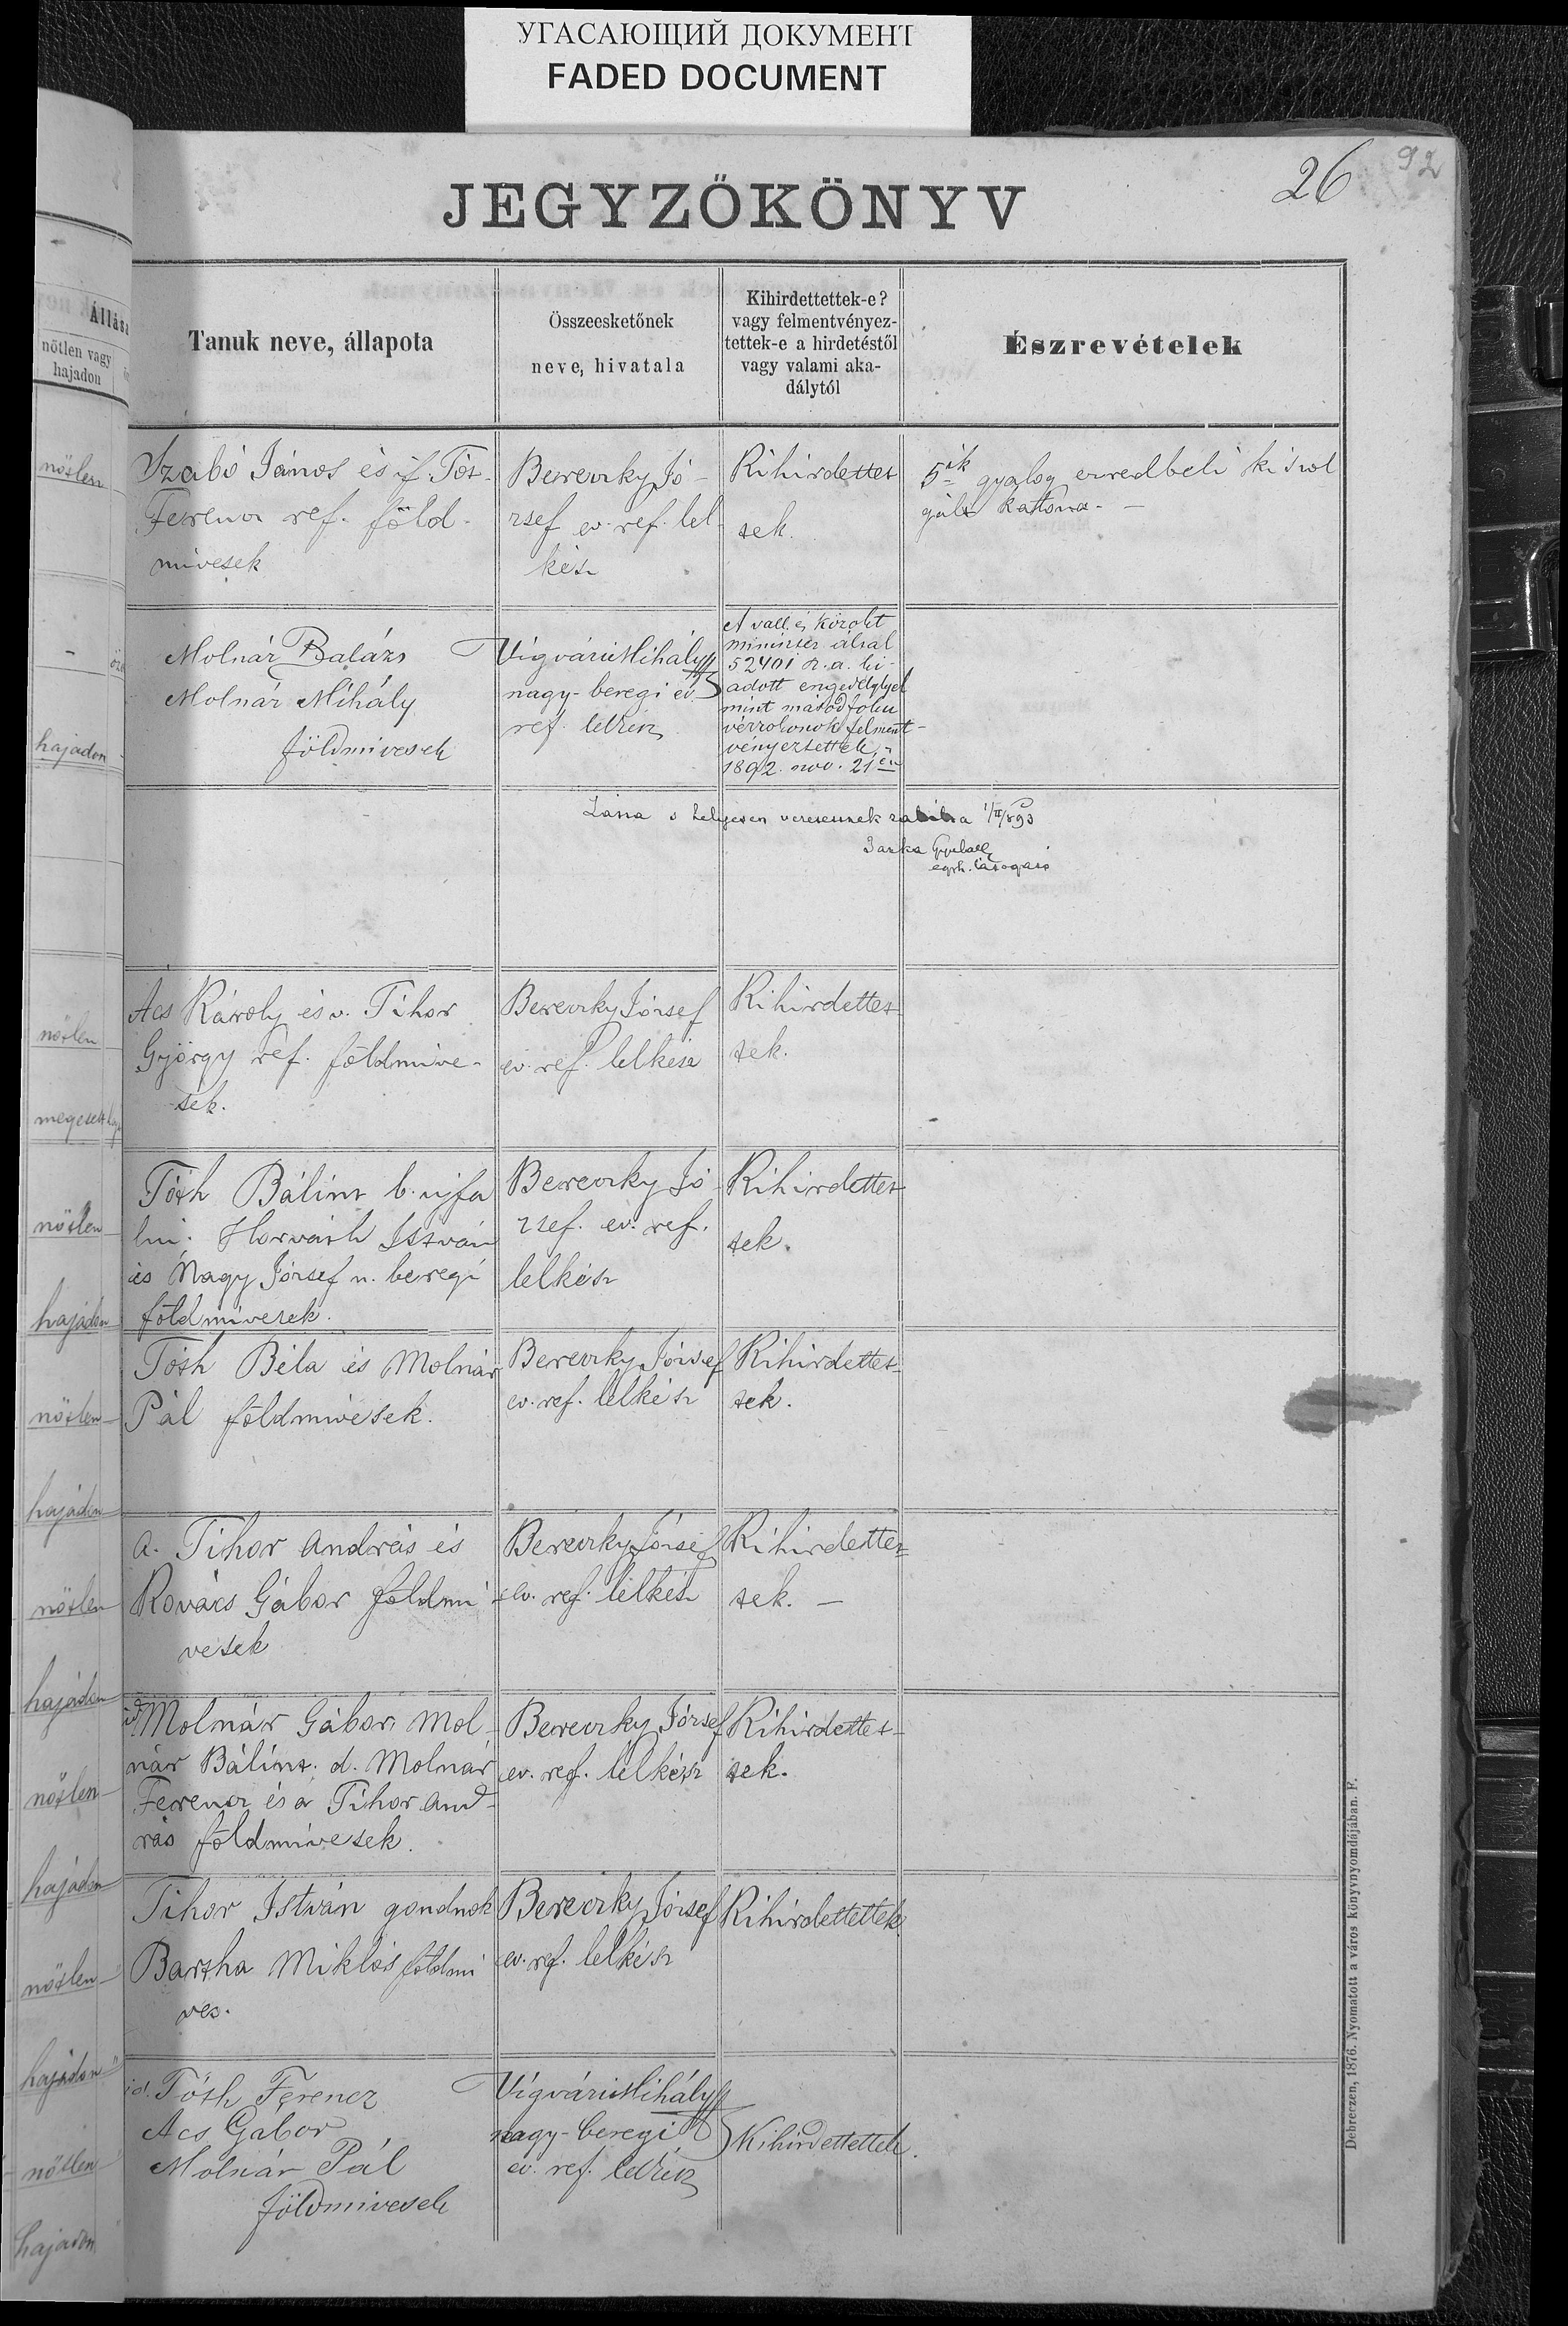 УГАСАЮЩИЙ ДОКУМЕНТ
FADED DOCUMENT
26
92
JEGYZŐKÖNYV
Állása
nőtlen vagy
hajadon
Tanuk neve, állapota
Összeesketőnek
neve, hivatala
Kihirdettettek-e?
vagy felmentvényez-
tettek-e a hirdetéstől
vagy valami aka-
dálytól
Észrevételek
nőtlen
Szabó János és if. Tót
Ferencz ref. föld-
mivesek
Bereczky Jó-
zsef ev. ref. lel-
kész
Kihirdettet
tek.
5ik gyalog ezredbeli kiszol
gált katona. —
hajadon
Molnár Balázs
Molnár Mihály
földmivesek
Vigvári Mihály
nagy-beregi ev.
ref. lelkész
A vall. és közokt
miniszter által
52401 sz. a. ki-
adott engedélylyel
mint másodfoku
vérrokonok felment-
vényeztettek,
1892. nov. 21én
Látta s helyesen vezetettnek találta 1/II/893
egyh. látogató
nőtlen
megesett
Ács Károly és v. Tihor
György ref. földmive-
sek.
Bereczky József
ev. ref. lelkész
Kihirdettet-
tek.
nőtlen
hajadon
Tóth Bálint b. ujfa
lui. Horváth István
és Nagy József n. beregi
földmivesek.
Bereczky Jó-
zsef. ev. ref.
lelkész
Kihirdettet
tek.
nőtlen
hajadon
Tóth Béla és Molnár
Pál földmivesek.
Bereczky József
ev. ref. lelkész
Kihirdettet-
tek.
nőtlen
hajadon
a. Tihor András és
Kovács Gábor földmi
vesek
Bereczky József
ev. ref. lelkész
Kihirdettet-
tek. —
nőtlen
hajadon
id Molnár Gábor, Mol-
nár Bálint. d. Molnár
Ferencz és a Tihor And-
rás földmivesek.
Bereczky József
ev. ref. lelkész
Kihirdettet-
tek.
nőtlen
hajadon
Tihor István gondnok
Bartha Miklós földmi
ves.
Bereczky József
ev. ref. lelkész
Kihirdettettek
nőtlen
hajadon
id. Tóth Ferencz
Ács Gábor
Molnár Pál
földmivesek
Vigvári Mihály
nagy-beregi
ev. ref. lelkész
Kihirdettettek.
Debreczen, 1876. Nyomatott a város könyvnyomdájában. F.